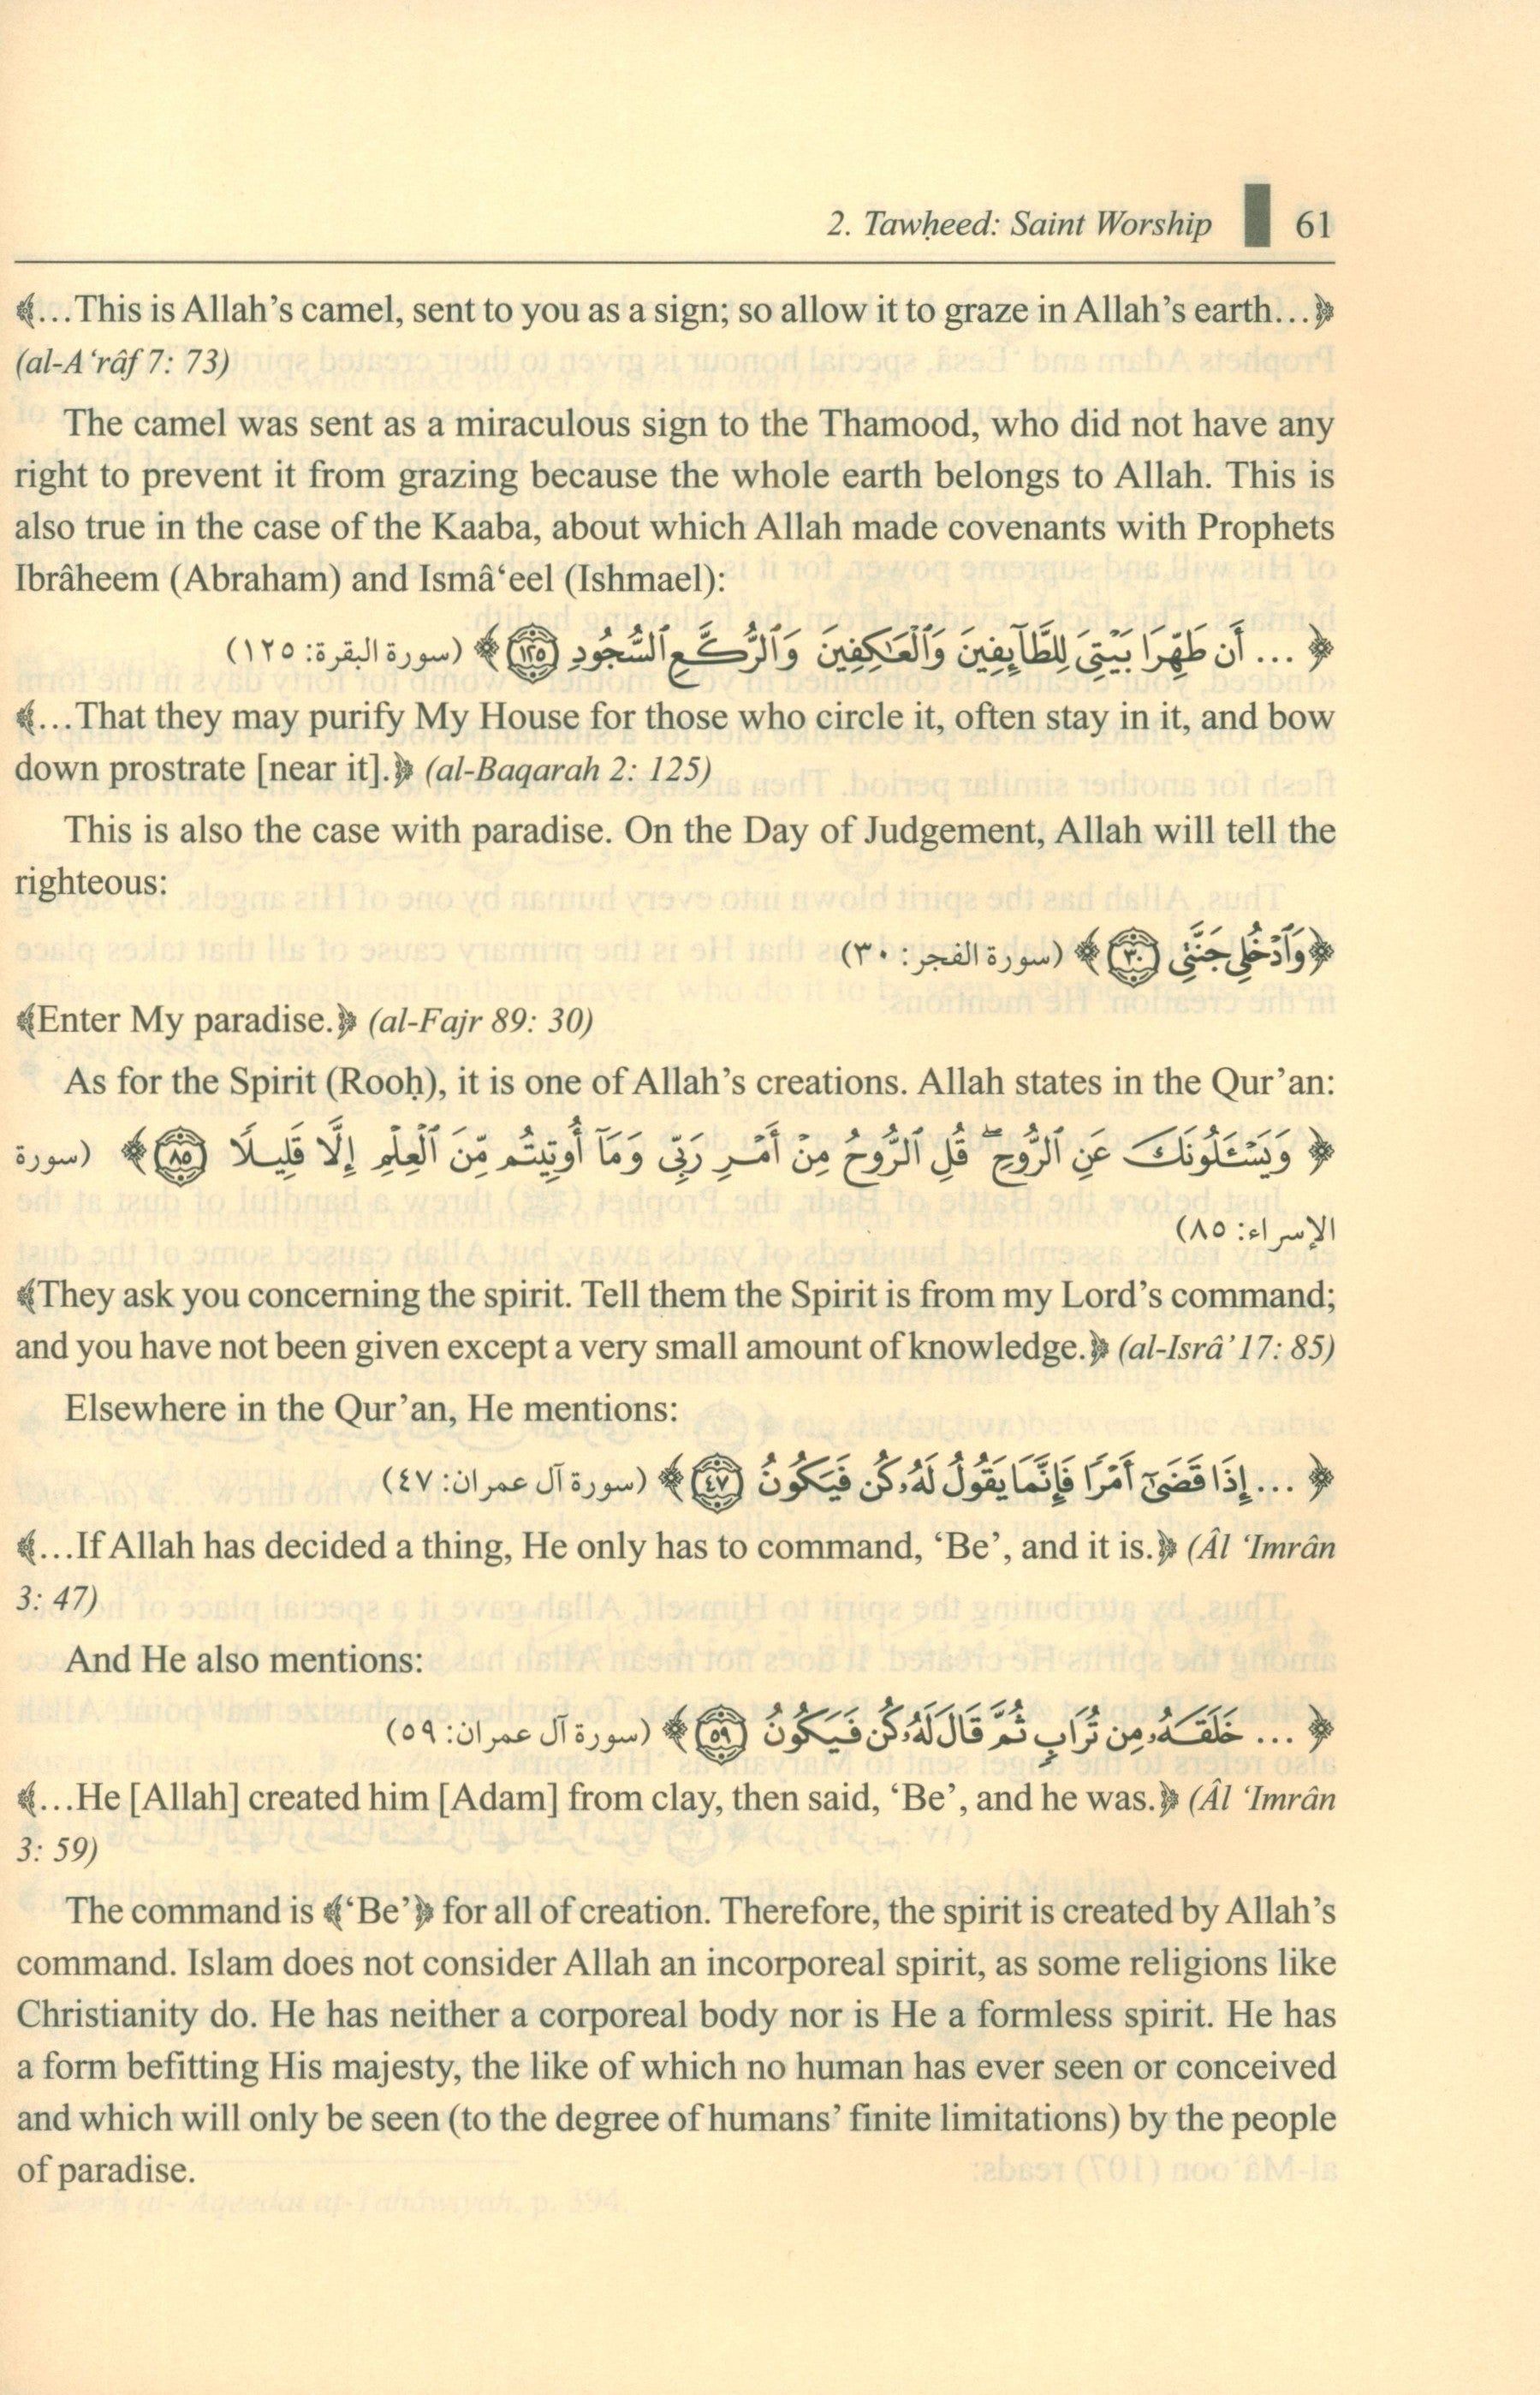 2. Tawḥeed: Saint Worship 61
﴾…This is Allah’s camel, sent to you as a sign; so allow it to graze in Allah’s earth…﴿
(al-A‘râf 7: 73)
The camel was sent as a miraculous sign to the Thamood, who did not have any
right to prevent it from grazing because the whole earth belongs to Allah. This is
also true in the case of the Kaaba, about which Allah made covenants with Prophets
Ibrâheem (Abraham) and Ismâ‘eel (Ishmael):
﴿ ... أَن طَهِّرَا بَيْتِيَ لِلطَّآئِفِينَ وَٱلْعَـٰكِفِينَ وَٱلرُّكَّعِ ٱلسُّجُودِ ١٢٥ ﴾ (سورة البقرة: ١٢٥)
﴾…That they may purify My House for those who circle it, often stay in it, and bow
down prostrate [near it].﴿ (al-Baqarah 2: 125)
This is also the case with paradise. On the Day of Judgement, Allah will tell the
righteous:
﴿وَٱدْخُلِى جَنَّتِى ٣٠ ﴾ (سورة الفجر: ٣٠)
﴾Enter My paradise.﴿ (al-Fajr 89: 30)
As for the Spirit (Rooḥ), it is one of Allah’s creations. Allah states in the Qur’an:
﴿ وَيَسْـَٔلُونَكَ عَنِ ٱلرُّوحِ ۖ قُلِ ٱلرُّوحُ مِنْ أَمْرِ رَبِّى وَمَآ أُوتِيتُم مِّنَ ٱلْعِلْمِ إِلَّا قَلِيلًا ٨٥ ﴾ (سورة
الإسراء: ٨٥)
﴾They ask you concerning the spirit. Tell them the Spirit is from my Lord’s command;
and you have not been given except a very small amount of knowledge.﴿ (al-Isrâ’ 17: 85)
Elsewhere in the Qur’an, He mentions:
﴿ ... إِذَا قَضَىٰٓ أَمْرًا فَإِنَّمَا يَقُولُ لَهُۥ كُن فَيَكُونُ ٤٧ ﴾ (سورة آل عمران: ٤٧)
﴾…If Allah has decided a thing, He only has to command, ‘Be’, and it is.﴿ (Âl ‘Imrân
3: 47)
And He also mentions:
﴿ ... خَلَقَهُۥ مِن تُرَابٍ ثُمَّ قَالَ لَهُۥ كُن فَيَكُونُ ٥٩ ﴾ (سورة آل عمران: ٥٩)
﴾…He [Allah] created him [Adam] from clay, then said, ‘Be’, and he was.﴿ (Âl ‘Imrân
3: 59)
The command is ﴾‘Be’﴿ for all of creation. Therefore, the spirit is created by Allah’s
command. Islam does not consider Allah an incorporeal spirit, as some religions like
Christianity do. He has neither a corporeal body nor is He a formless spirit. He has
a form befitting His majesty, the like of which no human has ever seen or conceived
and which will only be seen (to the degree of humans’ finite limitations) by the people
of paradise.